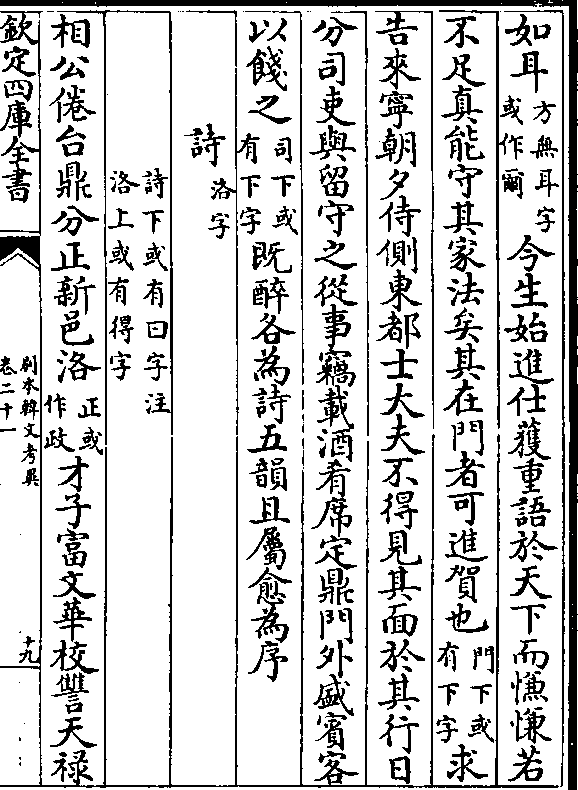 如耳方無耳字或作爾今生始進仕獲重語於天下而慊慊若
不足真能守其家法矣其在門者可進賀也門下或有下字求
告來寧朝夕侍側東都士大夫不得見其面於其行日
分司吏與留守之從事竊載酒肴席定鼎門外盛賓客
以餞之司下或有下字既醉各為詩五韻且屬愈為序
詩洛字
詩下或有曰字注洛上或有得字
相公倦台鼎分正新邑洛正或作政才子富文華校讐天祿
欽定四庫全書
别本韓文考異
卷二十一
十九